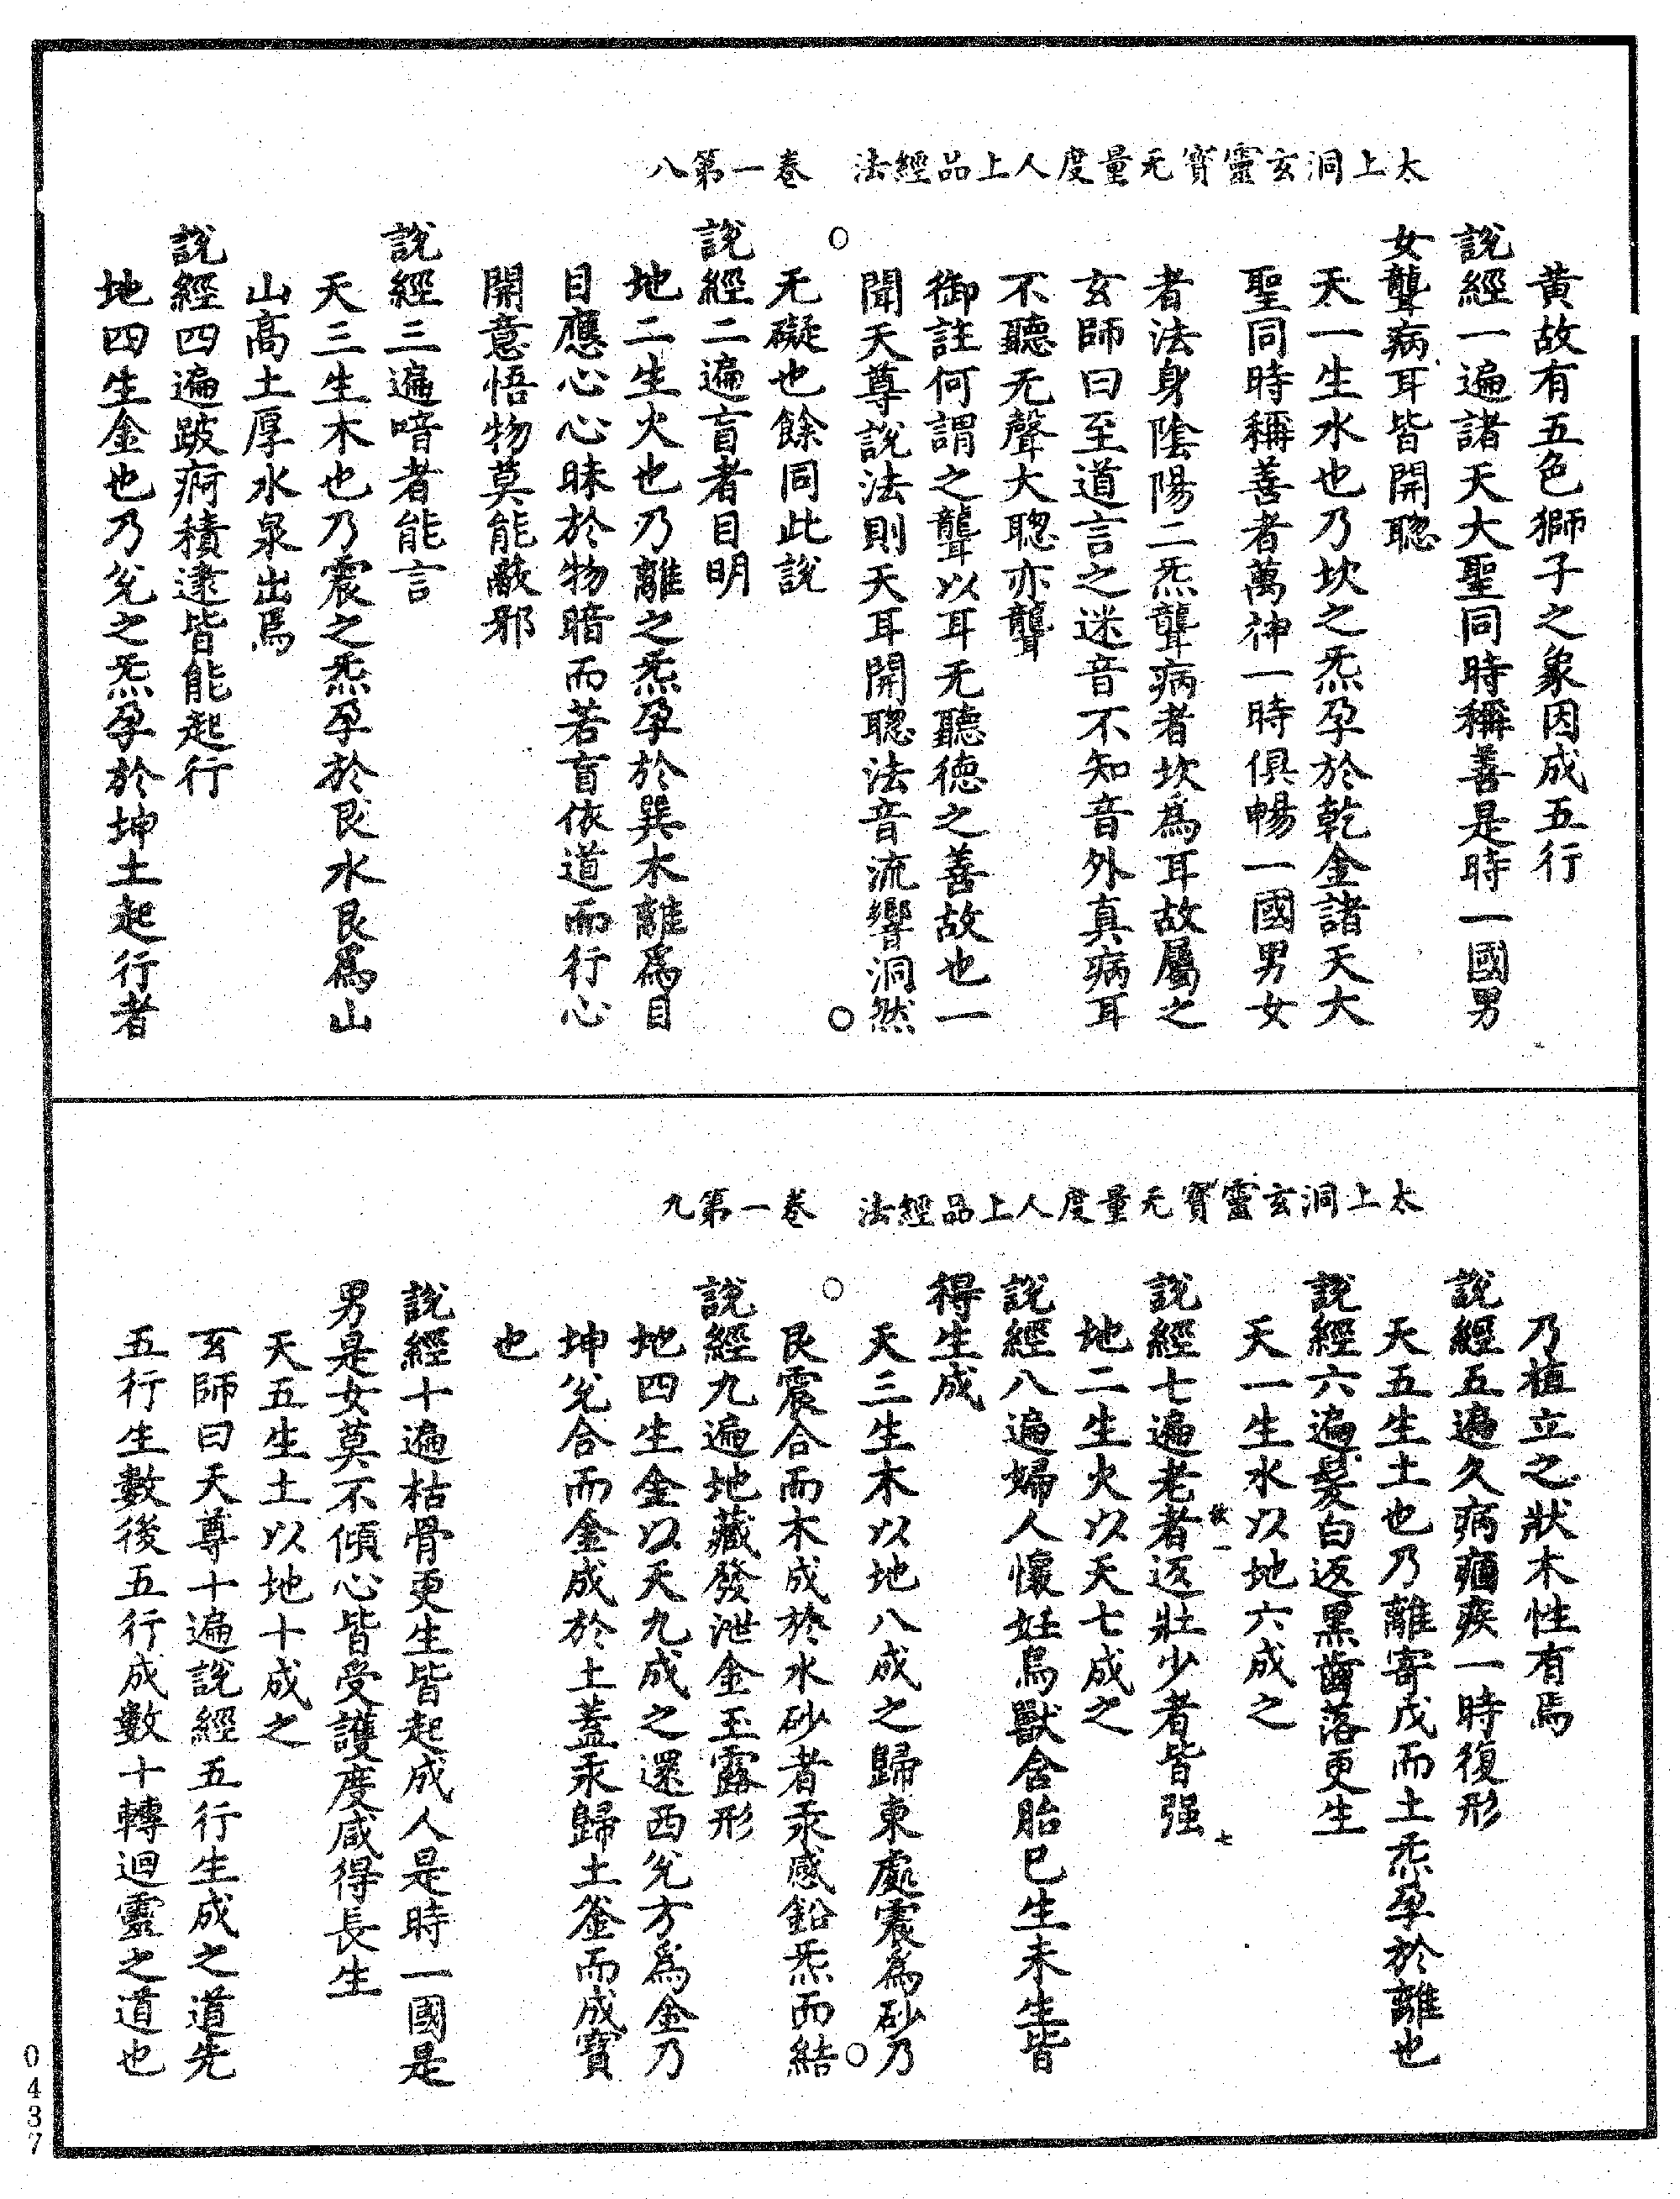 太上洞玄靈寶无量度人上品經法　卷一第八
黃故有五色獅子之象因成五行
說經一遍諸天大聖同時稱善是時一國男
女聾病耳皆開聦
天一生水也乃坎之炁孕於乾金諸天大
聖同時稱善者萬神一時俱暢一國男女
者法身陰陽二炁聾病者坎爲耳故屬之
玄師曰至道言之迷音不知音外真病耳
不聽无聲大聦亦聾
御註何謂之聾以耳无聽德之善故也一
聞天尊說法則天耳開聦法音流響洞然
无礙也餘同此說
說經二遍盲者目明
地二生火也乃離之炁孕於巽木離爲目
目應心心昧於物暗而若盲依道而行心
開意悟物莫能敵邪
說經三遍喑者能言
天三生木也乃震之炁孕於艮水艮爲山
山高土厚水泉出焉
說經四遍跛痾積逮皆能起行
地四生金也乃兊之炁孕於坤土起行者
太上洞玄靈寶无量度人上品經法　卷一第九
乃植立之狀木性有焉
說經五遍久病痼疾一時復形
天五生土也乃離寄戊而土炁孕於離也
說經六遍髮白返黑齒落更生
天一生水以地六成之
說經七遍老者返壯少者皆强
地二生火以天七成之
說經八遍婦人懷妊鳥獸含胎已生未生皆
得生成
天三生木以地八成之歸東處震爲砂乃
艮震合而木成於水砂者汞感鉛炁而結
說經九遍地藏發泄金玉露形
地四生金以天九成之還西兊方爲金乃
坤兊合而金成於土蓋汞歸土釜而成寶
也
說經十遍枯骨更生皆起成人是時一國是
男是女莫不傾心皆受護度咸得長生
天五生土以地十成之
玄師曰天尊十遍說經五行生成之道先
五行生數後五行成數十轉迴靈之道也
0437